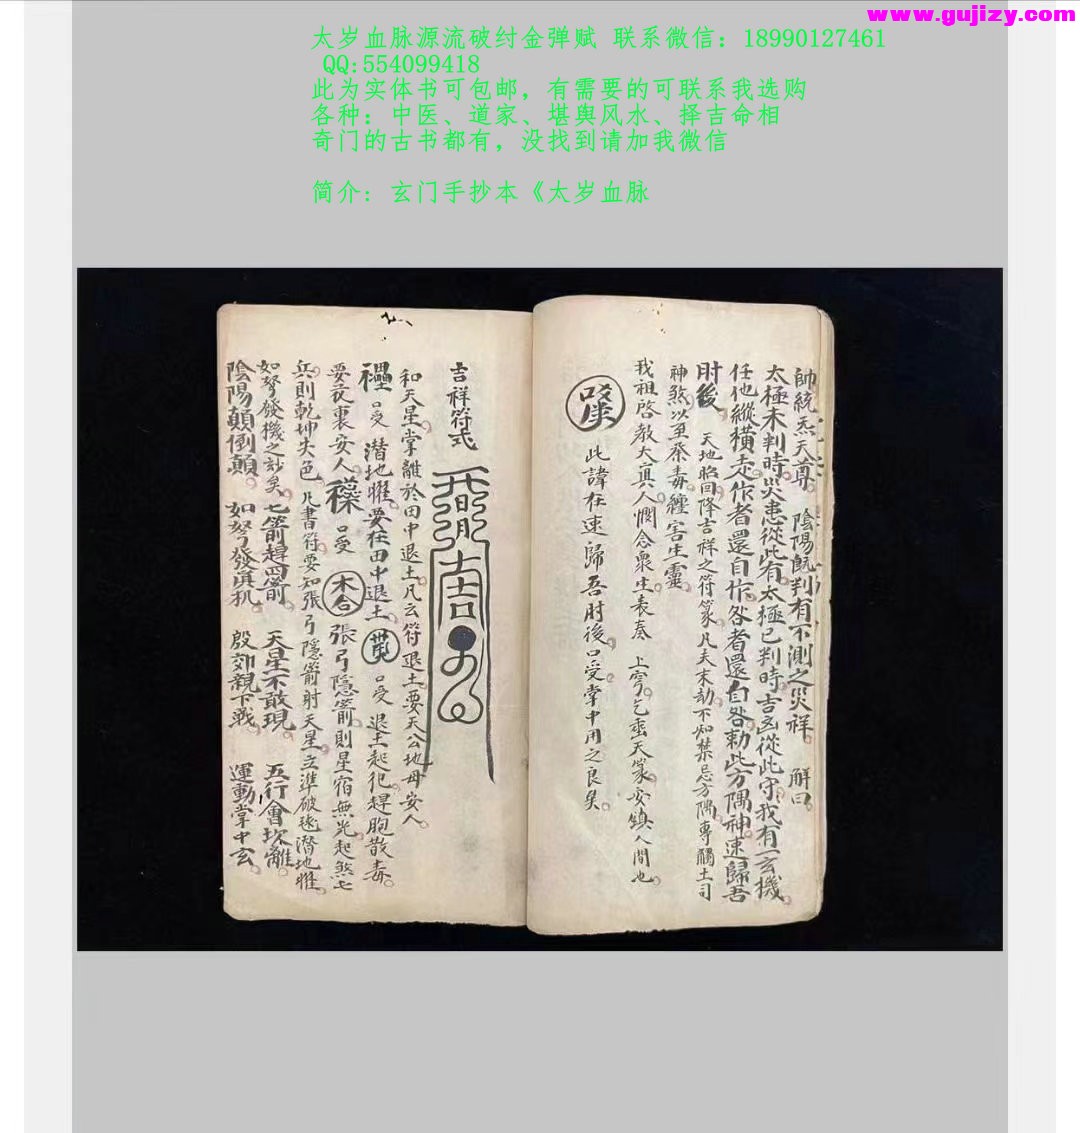 www.gujizy.com
太岁血脉源流破纣金弹赋 联系微信：18990127461
QQ:554099418
此为实体书可包邮，有需要的可联系我选购
各种：中医、道家、堪舆风水、择吉命相
奇门的古书都有，没找到请加我微信
简介：玄门手抄本《太岁血脉
帥統炁天尊 陰陽既判有不測之災祥 解曰
太極未判時災患從此有太極已判時吉凶從此守我有一玄機
任他縱橫走作者還自作咎者還自咎勅此方隅神速歸吾
肘後 天地昭回降吉祥之符篆凡夫末劫不知禁忌方隅專觸土司
神煞以至蔡毒纏害生靈
我祖啓教大真人憫念衆生表奏 上穹乞垂天篆安鎮人間也
此諱在速歸吾肘後口受掌中用之良矣
吉祥符式
和天星掌離於田中退土凡云符退土要天公地母安人
口受 潜地雅要在田中退土 口受 退土起犯趕胞散毒
要衣裏安人 口受 木合 張弓隱箭則星宿無光起煞七
兵則乾坤失色凡書符要知張弓隱箭射天星立準破毬潜地雅
如弩發機之玅矣 七箭趕四箭 天星不敢現 五行會坎離
陰陽顛倒顛 如弩發真机 殷郊親下戰 運動掌中玄